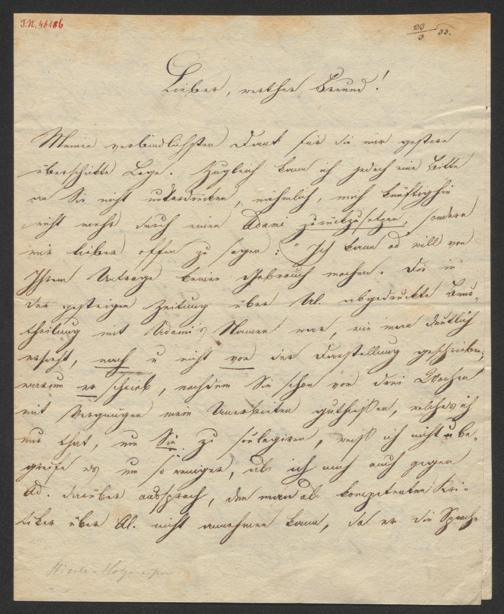 I.N. 46186
Lieber, werther Freund!
Meinen verbindlichsten Dank für die mir gestern
überschickte Loge. Zugleich kann ich jedoch eine Bitte
an Sie nicht unterdrücken, nähmlich, mich künftighin
nicht mehr durch einen Adami zurückzusetzen, sondern
mir lieber offen zu sagen: "Ich kann od will von
Ihrem Antrage keinen Gebrauch machen. Die in
der gestrigen Zeitung über abgedruckte Beur-
theilung mit Adamis Namen war, wie man deutlich
ersieht, nach u nicht vor der Darstellung geschrieben,
warum er schrieb, nachdem Sie schon vor drei Wochen
mit Vergnügen mein Anerbieten guthießen, welches ich
nur that, um Sie zu, weiß ich nicht u be-
greife es um so weniger, als ich mich auch gegen
Ad. darüber aussprach, den man als kompetenten Kri-
tiker über nicht annehmen kann, da er die Sprache